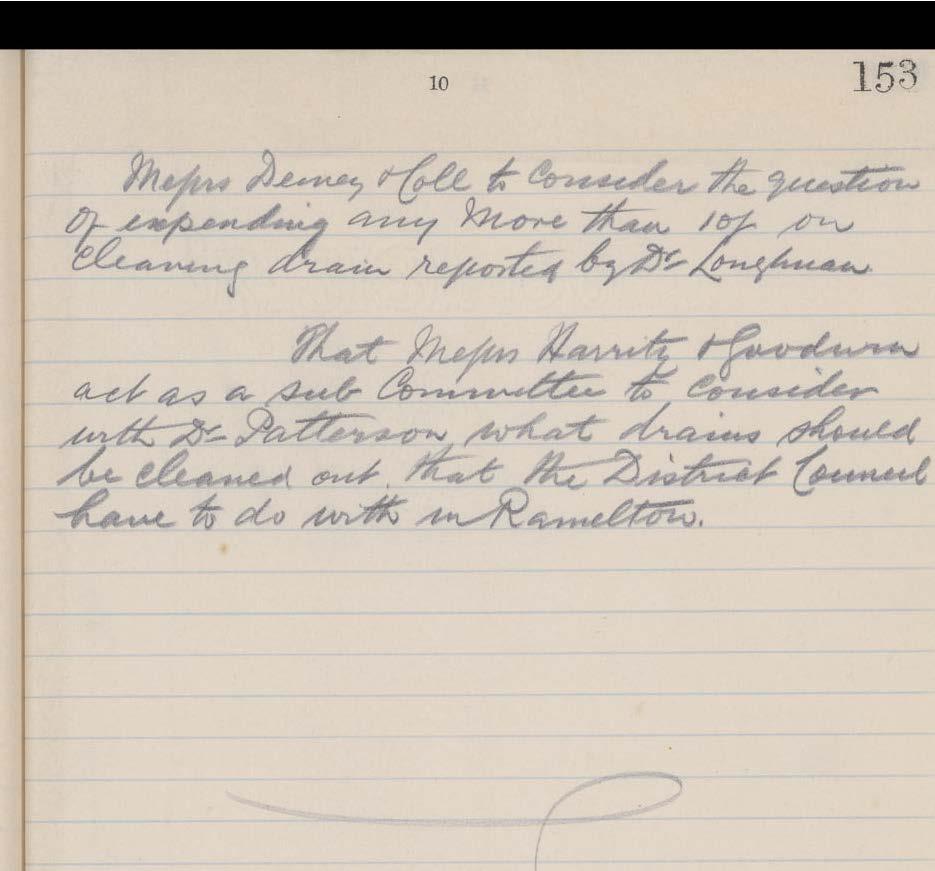 10
153
Messrs Deeney & Coll to Consider the question
of expending any More than 10/ on
Cleaning drain reported by Dr Loughman
That Messrs Harrity & Goodwin
act as a sub Committee to consider
with Dr Patterson what drains should
be cleaned out, that the District Council
have to do with in Ramelton.